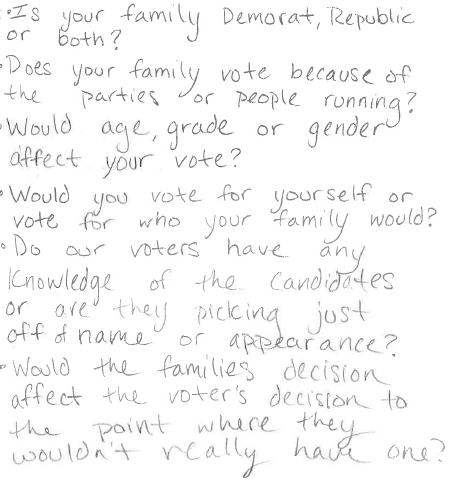 • Is your family Demorat, Republic
or both?
• Does your family vote because of
the parties or people running?
• Would age, grade or gender
affect your vote?
• Would you vote for yourself or
vote for who your family would?
• Do our voters have any
knowledge of the candidates
or are they picking just
off of name or appearance?
• Would the families decision
affect the voter's decision to
the point where they
wouldn't really have one?